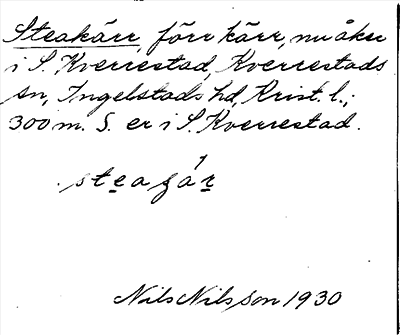 Steakärr, förr kärr, nu åker
i S. Kverrestad, Kverrestads
sn, Ingelstads hd, Krist. l.;
300 m. S. er i S. Kverrestad.
Nils Nilsson 1930